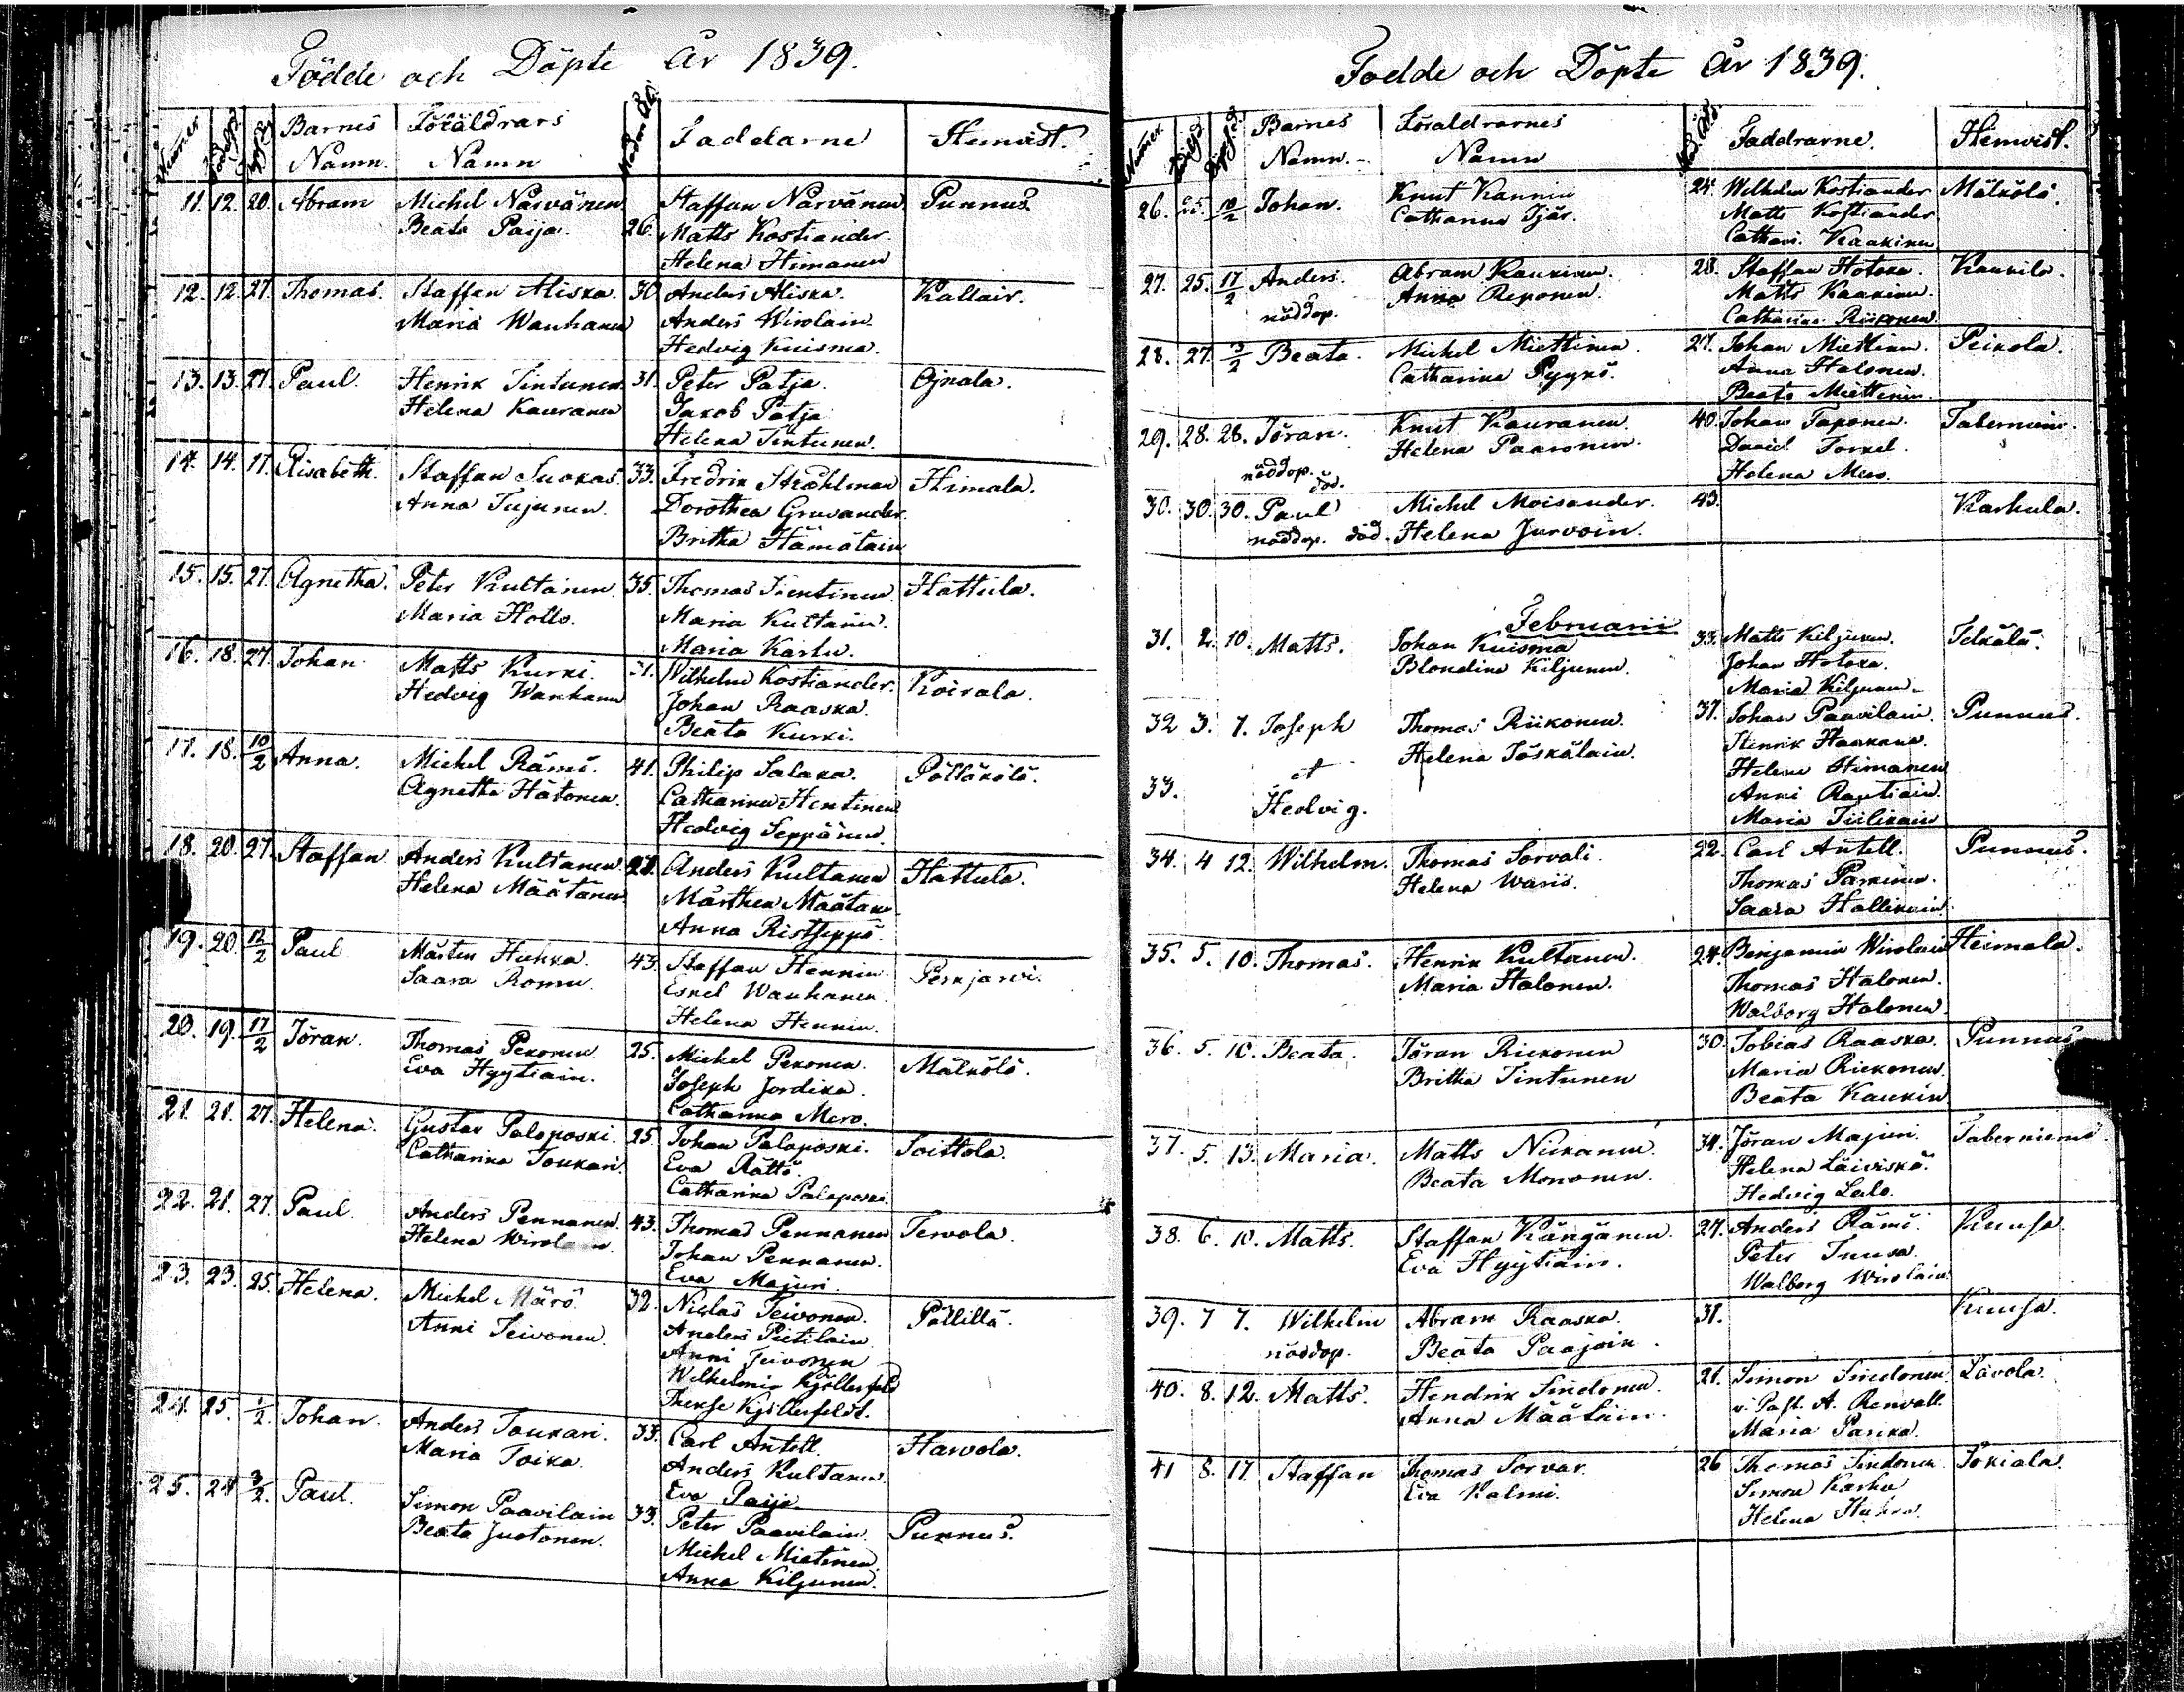 Födde och Döpte År 1839.
Numer Födelsed. Döpelsed. Barnes Namn Föräldrars Namn Modrens åld. Faddarne Hemvist.
11. 12. 20. Abram Michel Närvänen Staffan Närvänen Punnus.
Beata Paija. 26. Matts Kostiander.
Helena Himanen
12. 12. 27. Thomas. Staffan Aliska. 30 Anders Aliska. Kallais.
Maria Wanhanen Anders Wirolain.
Hedvig Kuisma.
13. 13. 27. Paul. Henrik Tintunen. 31. Peter Patja. Ojnala.
Helena Kauranen Jakob Patja
Helena Tintunen.
14. 14. 17. Elisabeth. Staffan Suokas. 33. Fredrik Ståhlman Himala.
Anna Tujunen. Dorothea Gruvander.
Britha Hämäläin
15. 15. 27. Agnetha. Peter Kultanen. 35. Thomas Tientinen Hattula.
Maria Hotts. Maria Kultanen.
Maria Karhu.
16. 18. 27. Johan Matts Kurki. 31. Wilhelm Kostiander. Koirala.
Hedvig Wanhanen Johan Raaska.
Beata Kurki.
17. 18. 10/2 Anna. Michel Rämö. 41. Philip Salaka. Pölläkälä.
Agnetha Hätönen. Catharina Hentinen
Hedvig Seppänen.
18. 20. 27. Staffan Anders Kultanen 27. Anders Kultanen Hattula.
Helena Määtänen Märtha Määtänen
Anna Ristseppä.
19. 20. 12/2 Paul Mårten Huhka. 43. Staffan Hennin Perkjärvi.
Saara Romu. Eskel Wanhanen.
Helena Hennin.
20. 19. 17/2 Jöran. Thomas Pekonen. 25. Michel Pekonen. Mälkölä.
Eva Hyytiäin. Joseph Jordika.
Catharina Mero.
21. 21. 27. Helena. Gustav Paloposki. 25. Johan Paloposki. Soittola.
Catharina Toukari. Eva Rättö.
Catharina Paloposki.
22. 21. 27. Paul. Anders Pennanen. 43. Thomas Pennanen Tervola.
Helena Wirolain. Johan Pennanen.
Eva Majuri.
23. 23. 25. Helena. Michel Märö. 32. Niclas Teivonen. Pällillä.
Anni Teivonen. Anders Pietiläin
Anni Teivonen
Wilhelmin Kjöllerfeld
Therese Kjöllerfeldt.
24. 25. 1/2. Johan. Anders Toukari. 33. Carl Antell. Harvola.
Maria Toika. Anders Kultanen.
Eva Paija.
25. 24 3/2. Paul. Simon Paavilain 33. Peter Paavilain. Punnus.
Beata Juotonen. Michel Mietinen
Anna Kiljunen.
Födde och Döpte År 1839.
Numer. Födelsed. Döpelsed. Barnes Namn. Föräldrarnes Namn Mod. Åld. Faddrarne. Hemvist.
26. 25. 10/2 Johan. Knut Kannin 24. Wilhelm Kostiander Mälkölä.
Catharina Tjär. Matts Kostiander
Cathari. Kaakinen
27. 25. 17/2 Anders. Abram Kaukinen. 28. Staffan Hotoka. Kaukila.
nöddop. Anna Reponen. Matts Kaakinen.
Catharina Riikonen.
28. 27. 3/2 Beata. Michel Miettinen. 27. Johan Miettinen. Peikola.
Catharina Pyykö. Anna Halonen.
Beata Miettinen.
29. 28. 28. Jöran. Knut Kauranen. 40. Johan Taponen. Taberniemi.
nöddop. död. Helena Paaronen. David Torkel.
Helena Mero.
30. 30. 30. Paul Michel Moisander. 43. Karhula.
nöddop. död. Helena Jurvoin.
Februarii
31. 2. 10. Matts. Johan Kuisma 33. Matts Kiljunen. Telkälä.
Blondina Kiljunen. Johan Hotoka.
Maria Kiljunen.
32 3. 7. Joseph Thomas Riikonen. 37. Johan Paavilain. Punnus.
et Helena Jäskäläin. Henrik Haakana.
33. Hedvig. Helena Himanen
Anni Rautiain.
Maria Tiilikain
34. 4 12. Wilhelm. Thomas Sorvali. 22. Carl Antell. Punnus.
Helena Waris. Thomas Parkinen.
Saara Hallikain.
35. 5. 10. Thomas. Henrik Kultanen. 24. Benjamin Wirolain Heimala.
Maria Halonen. Thomas Halonen.
Walborg Halonen.
36. 5. 10. Beata. Jöran Riekonen 30. Tobias Raaska. Punnus
Britha Tintunen Maria Riekonen.
Beata Kaukin
37. 5. 13. Maria. Matts Niikanen. 34. Jöran Majuri. Taberniemi.
Beata Mononen. Helena Läiviskö.
Hedvig Lalo.
38. 6. 10. Matts. Staffan Kängänen. 27. Anders Rämö. Kuusa.
Eva Hyytiäin. Peter Tuusa.
Walborg Wirolain.
39. 7 7. Wilhelm Abram Raaska. 31. Kuusa.
nöddop. Beata Paajoin.
40. 8. 12. Matts. Hendrik Sindonen. 21. Simon Sindonen. Lävola.
Anna Määtäin. v. Past. A. Renvall.
Maria Parika.
41 8. 17. Staffan Thomas Sorvar. 26 Thomas Sindonen Jokiala.
Eva Kalmi. Simon Karhu
Helena Huhka.